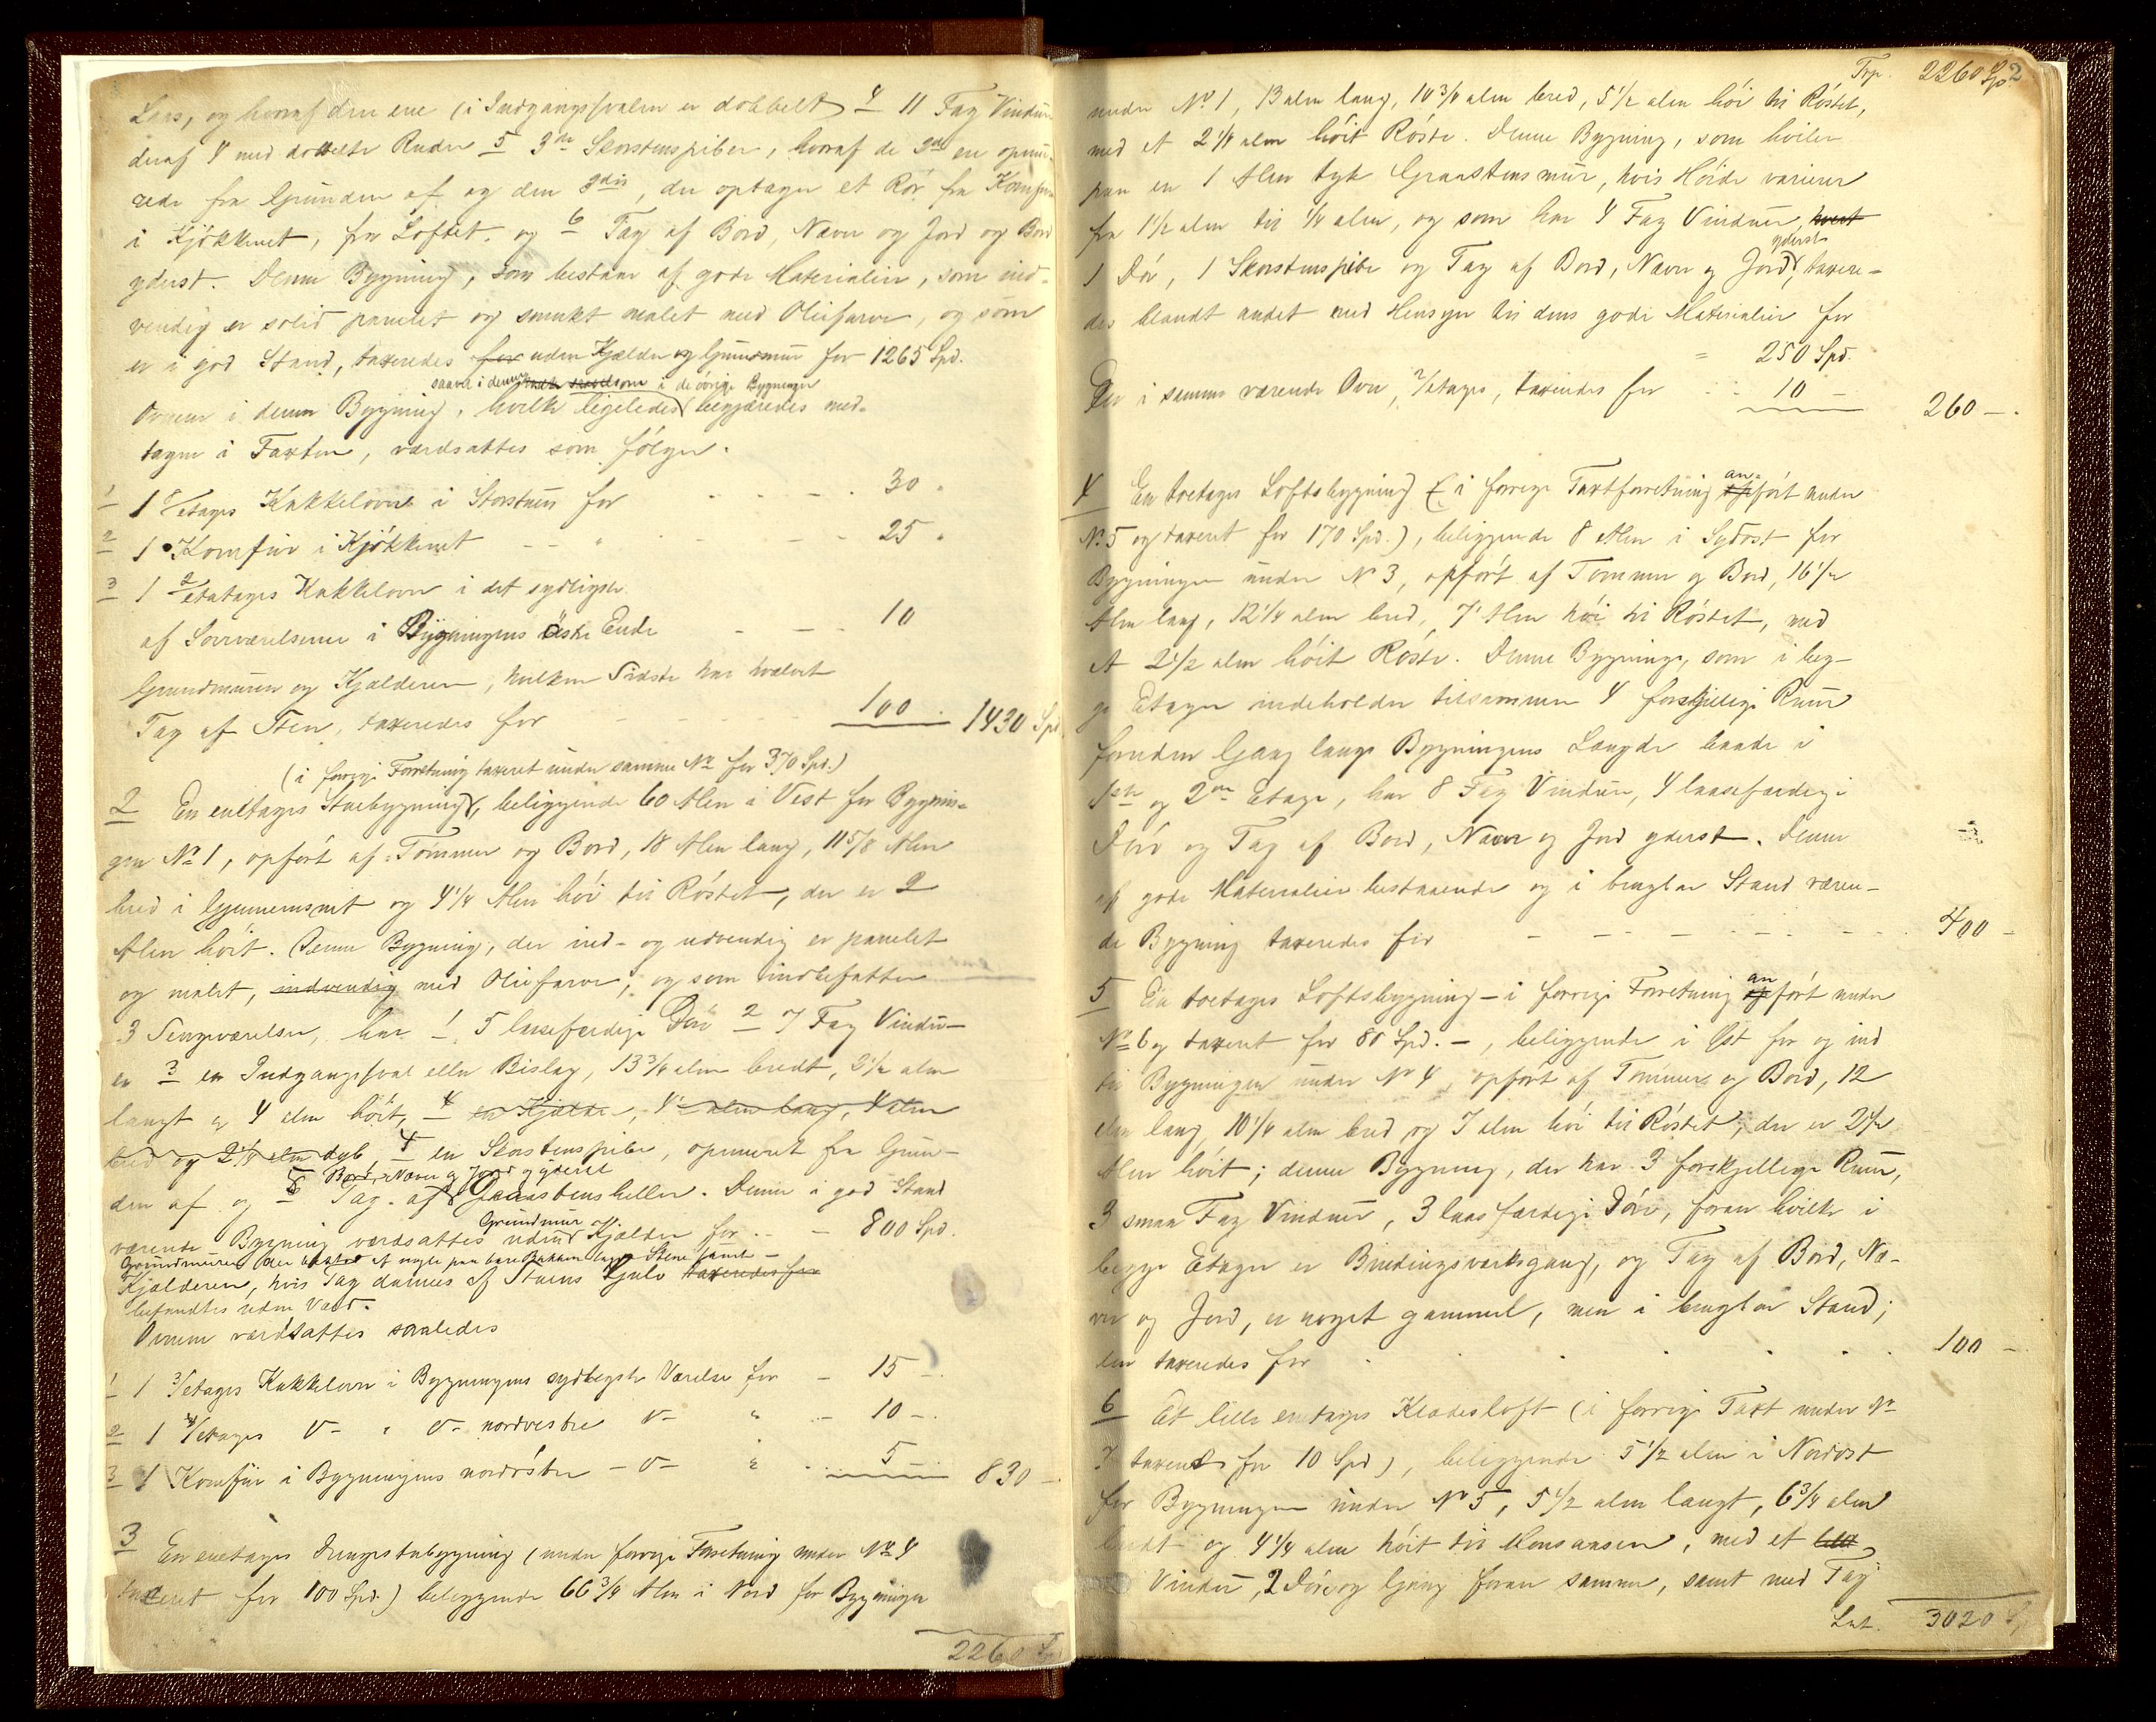 Laas, og hvoraf den ene (i Indgangssvalen er dobbelt) 4 11 Fag Vinduer
deraf 4 med dobbelte Ruder 5 3de Skorstenspiber, hvoraf de 2de er opmu-
rede fra Grunden af og den 3die, der optager et Rör fra Komfuren
i Kjökkenet, fra Loftet, og 6 Tag af Bord, Næver og Jord og Bord
yderst. Denne Bygning, som bestaar af gode Materialier, som ind-
vendig er solid panelet og smukt malet med Oliefarve, og som
er i god Stand, taxeredes for uden Kjælder og Grundmur for 1265 Spd.
saavel i denne som i de övrige Bygninger
Ovnene i denne Bygning, hvilke ligeledes begjæredes med-
tagne i Taxten, værdsattes som fölger.
1 1 Etages Kakkelovn i Storstuen for 30 "
2 1 Komfur i Kjökkenet - - " - - 25 "
3 1 2/etages Kakkelovn i det sydligste
af Soveværelserne i Bygningens östre Ende - - - 10
Grundmuren og Kjælderen, hvilken Sidste har hvælvet
Tag af Sten, taxeredes for - - - 100 1430 Spd
(i forrige Forretning taxeret under samme No for 370 Spd.)
2 En enetages Stuebygning, beliggende 60 Alen i Vest for Bygnin-
gen No 1, opfört af Tömmer og Bord, 18 Alen lang, 11 5/8 Alen
bred i Gjennemsnit og 4 1/4 Alen höi til Röstet, der er 2
Alen höit. Denne Bygning, der ind- og udvendig er panelet
og malet, indvendig med Oliefarve, og som indbefatter
3 Sengeværelser, har 1 5 laasefærdige Döre 2 7 Fag Vindu-
er 3 en Indgangssval eller Bislag, 13 3/4 alen bredt, 2 1/2 alen
langt og 4 alen höit, 4 en Kjælder, 4 alen lang, 4 alen
bred og 2 1/4 alen dyb, 4 en Skorstenspibe, opmuret fra Grun-
Bord, Næver og Jord og yderst
den af og 5 Tag af Graastensheller. Denne i god Stand
Grundmur og
værende Bygning værdsattes uden Kjælder for - - 800 Spd.
Grundmuren der bestod af nogle paa bare Bakken lagte Stene samt
Kjælderen, hvis Tag dannes af Stuens Gulv taxeredes for
befandtes uden Værd.
Ovnene værdsattes saaledes
1 1 3/etages Kakkelovn i Bygningens sydligste Værelse for - 15 -
2 1 /etages v- " v- nordvestre v- " - 10 -
3 1 Komfur i Bygningens nordöstre - v- " 5 830 -
3 En enetages Drengestubygning (under forrige Forretning under No 4
taxeret for 100 Spd.) beliggende 66 3/4 Alen i Nord for Bygningen
2260 Spd
Trp. 2260 Spd 2
under No 1, 13 alen lang, 10 3/4 alen bred, 5 1/2 alen höi til Röstet,
med et 2 1/4 alen höit Röste. Denne Bygning, som hviler
paa en 1 Alen tyk Graastensmur, hvis Höide varierer
fra 1 1/2 alen til 1/4 alen, og som har 4 Fag Vinduer, hvert
yderst
1 Dör, 1 Skorstenspibe og Tag af Bord, Næver og Jord, taxere-
des blandt andet med Hensyn til dens gode Materialier for
= 250 Spd.
Den i samme værende Ovn, 2/etages, taxeredes for - - 10 - 260 -
4 En toetages Loftsbygning (i forrige Taxtforretning opfört under
an-
No 5 og taxeret for 170 Spd.), beliggende 8 Alen i Sydost for
Bygningen under No 3, opfört af Tömmer og Bord, 16 1/2
Alen lang, 12 1/4 alen bred, 7 Alen höi til Röstet, med
et 2 1/2 alen höit Röste. Denne Bygning, som i beg-
ge Etager indeholder tilsammen 4 forskjellige Rum
foruden Gang langs Bygningens Længde baade i
1ste og 2den Etage, har 8 Fag Vinduer, 4 laasefærdige
Döre og Tag af Bord, Næver og Jord yderst. Denne
af gode Materialier bestaaende og i brugbar Stand væren-
de Bygning taxeredes for - - - - - - - - 400 -
5 En toetages Loftsbygning - i forrige Forretning opfört under
an
No 6 og taxeret for 80 Spd. -, beliggende i Öst for og ind
til Bygningen under No 4, opfört af Tömmer og Bord, 12
alen lang, 10 1/4 alen bred og 7 alen höi til Röstet, der er 2 1/2
Alen höit; denne Bygning, der har 3 forskjellige Rum,
3 smaa Fag Vinduer, 3 laasfærdige Döre, foran hvilke i
begge Etager er Bindingsværksgang, og Tag af Bord, Næ-
ver og Jord, er noget gammel, men i brugbar Stand;
den taxeredes for . . . . . 100 -
6 Et lille enetages Klædesloft (i forrige Taxt under No
7 taxeret for 10 Spd), beliggende 5 1/2 alen i Nordost
for Bygningen under No 5, 5 1/2 alen langt, 6 3/4 alen
bredt og 4 1/4 alen höit til Mønsaasen, med et
Vindue, 2 Döre og Gang foran samme, samt med Tag
Lat. 3020 Sp